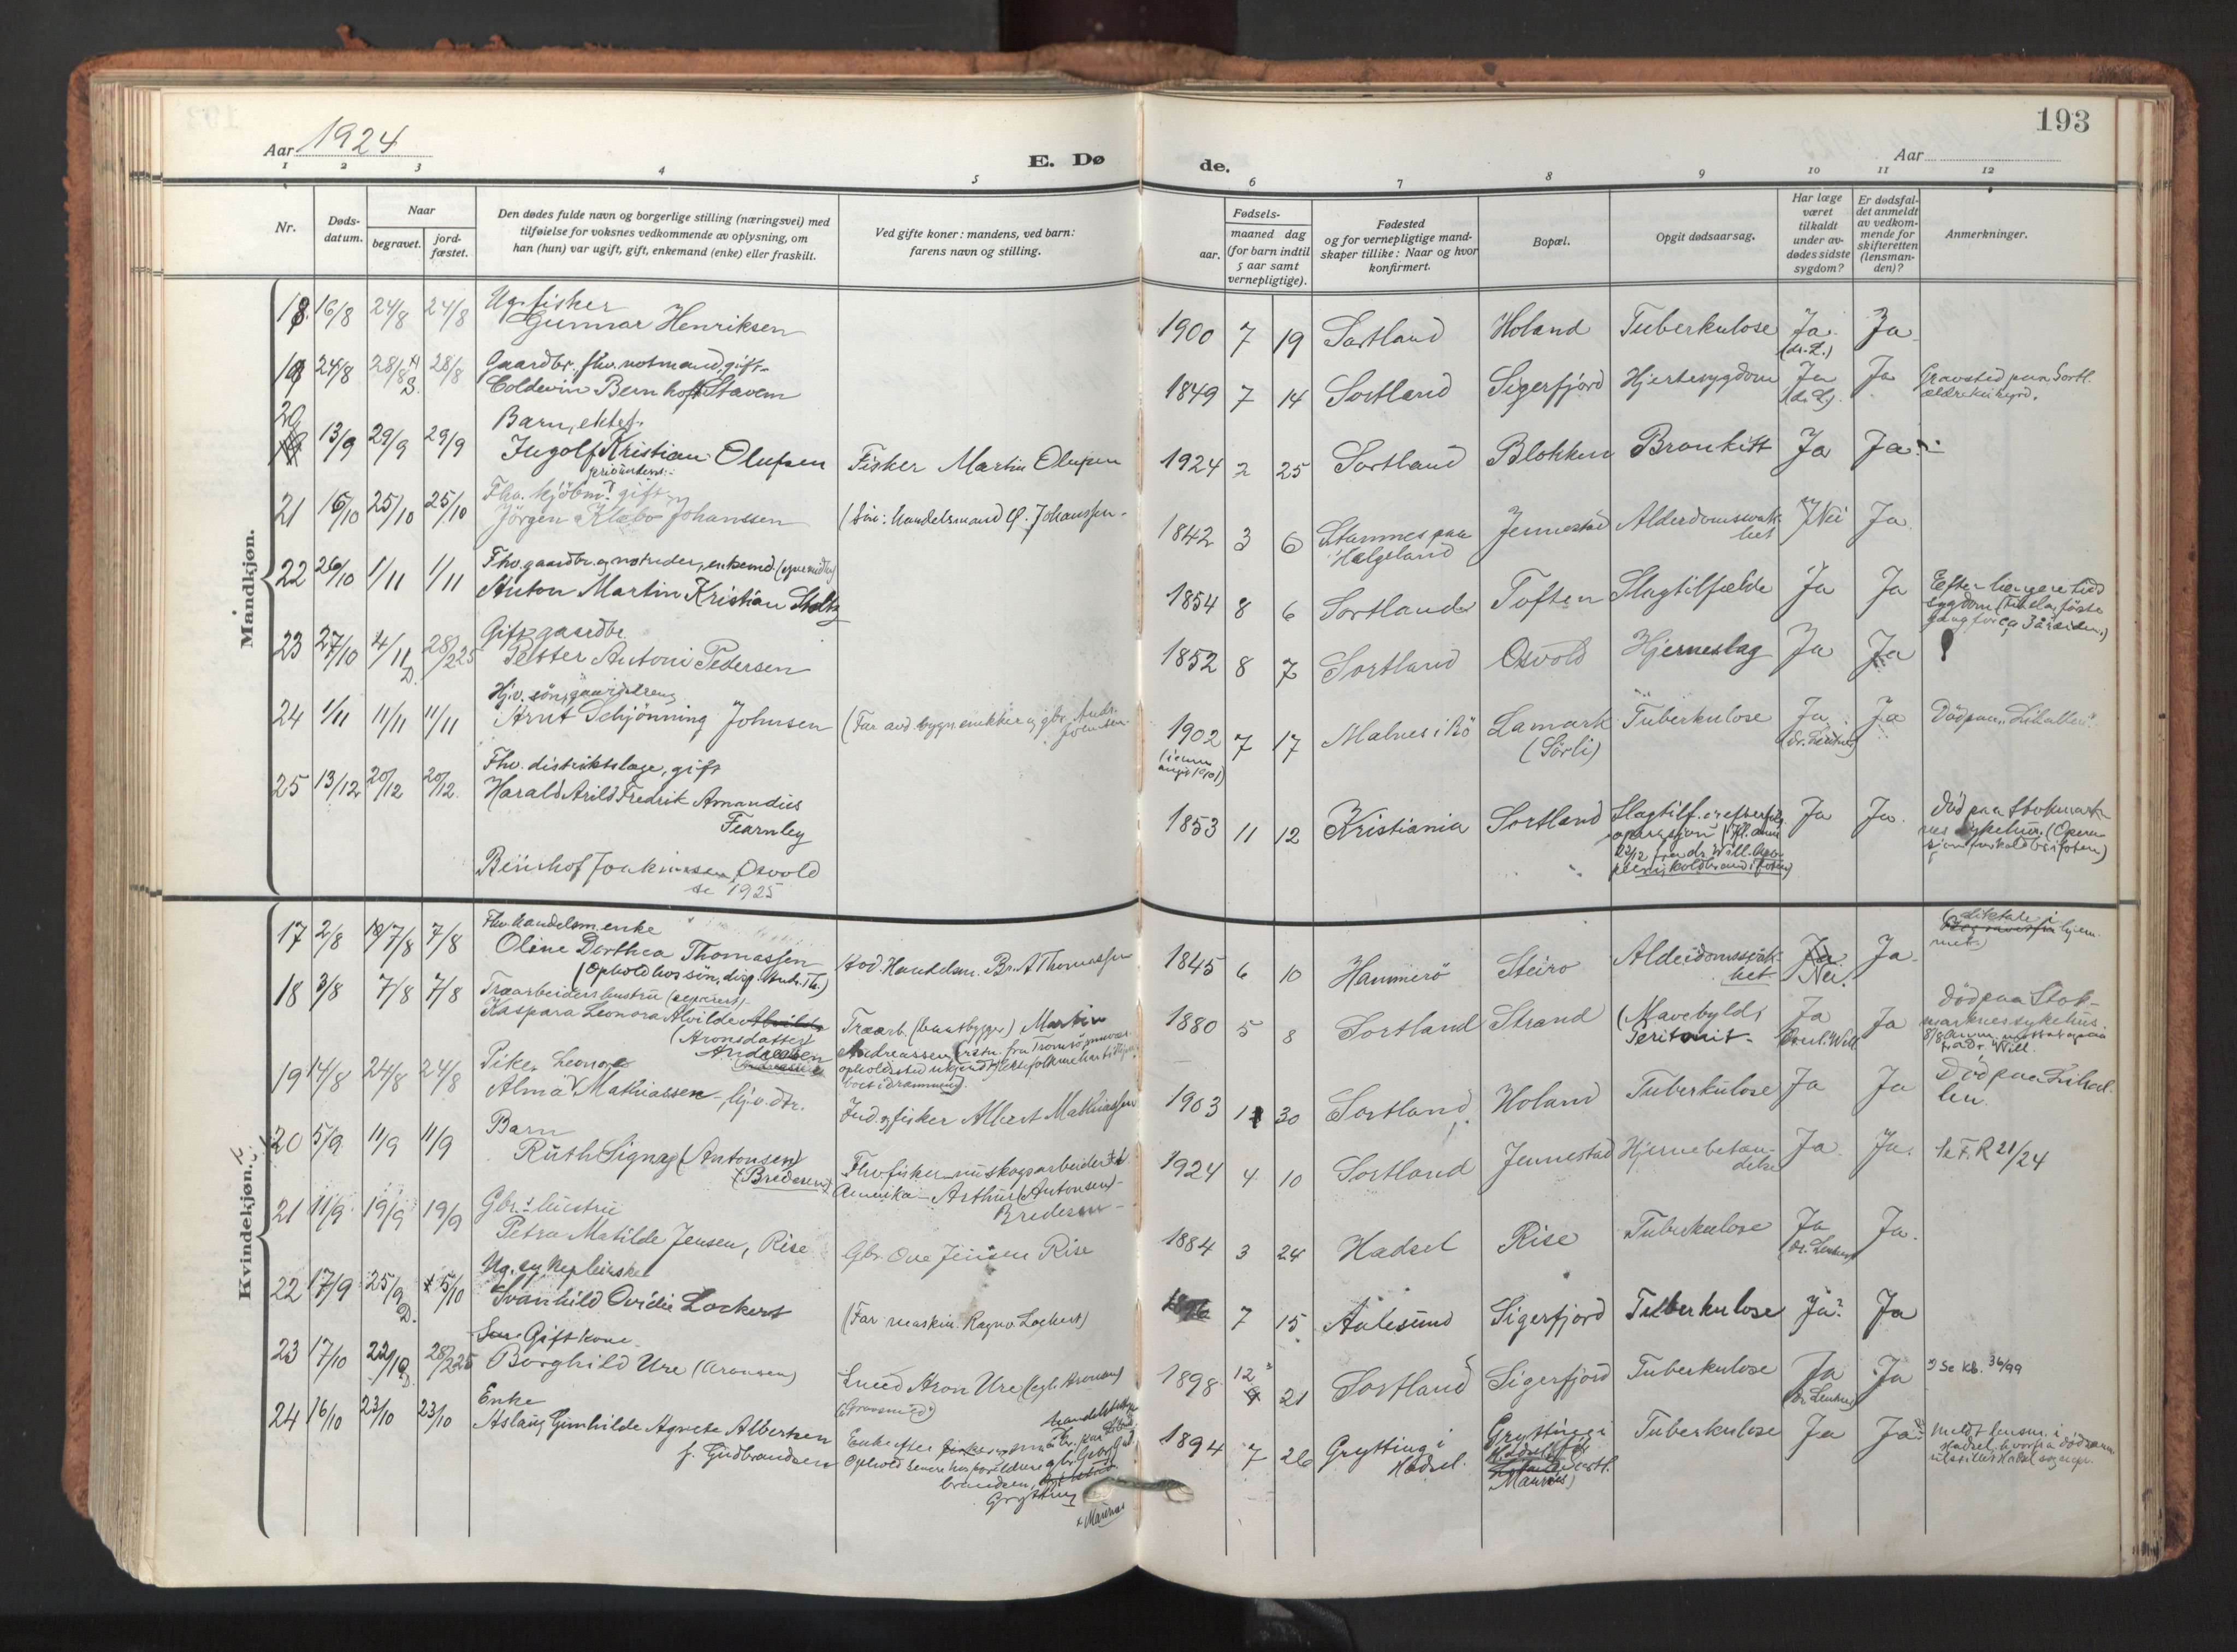 193
Aar 1924
E. Dø
de.
Aar
1 2 3 4 5 6 7 8 9 10 11 12
Nr.
Døds-
datum.
Naar
begravet.
jord-
fæstet.
Den dødes fulde navn og borgerlige stilling (næringsvei) med
tilføielse for voksnes vedkommende av oplysning, om
han (hun) var ugift, gift, enkemand (enke) eller fraskilt.
Ved gifte koner: mandens, ved barn:
farens navn og stilling.
Fødsels-
aar.
maaned dag
(for barn indtil
5 aar samt
vernepligtige).
Fødested
og for vernepligtige mand-
skaper tillike: Naar og hvor
konfirmert.
Bopæl.
Opgit dødsaarsag.
Har læge
været
tilkaldt
under av-
dødes sidste
sygdom?
Er dødsfal-
det anmeldt
av vedkom-
mende for
skifteretten
(lensman-
den)?
Anmerkninger.
Mandkjøn.
18. 16/8 24/8 24/8 Ug. fisker
Gunnar Henriksen
1900 7 19 Sortland Holand Tuberkulose Ja Ja
(dr. L.)
19 24/8 28/8 28/8 Gaardbr., fhv. notmand, gift.
Coldevin Bernhoft Stavem
1849 7 14 Sortland Sigerfjord Hjertesygdom Ja Ja Gravsted paa Sortl.
ældre kirkegrd.
20 13/9 29/9 29/9 Barn, ektef.
Ingolf Kristian Olufsen Fisker Martin Olufsen
1924 2 25 Sortland Blokken Bronkitt Ja Ja
21 16/10 25/10 25/10 Fhv. kjöbmd. gift
Jörgen Klæbo Johanssen
1842 3 6 Stamnes paa
Helgeland
Jennestad Alderdomssvak-
het
Nei Ja
22 26/10 1/11 1/11 Fhv. gaardbr. og notreder, enkemd.
Anton Martin Kristian Stoltz
1854 8 6 Sortland Toften Slagtilfælde Ja Ja Efter længere tids
sygdom
23 27/10 4/11 28/2 25 Gift gaardbr.
Petter Antoni Pedersen
1852 8 7 Sortland Osvold Hjerneslag Ja Ja
24 1/11 11/11 11/11 Hj.v. sön, gaardsdreng
Arnt Schjönning Johnsen
1902 7 17 Malnes i Bö Lamark
(Sörli)
Tuberkulose Ja Ja Död paa "Lihallen".
25 13/12 20/12 20/12. Fhv. distriktslæge, gift
Harald Arild Fredrik Amandus
Fearnley
1853 11 12 Kristiania Sortland Slagtilf. Ja Ja. Död paa Stokmark-
nes sykehus.
Osvold
se 1925
Kvindekjøn.
17 2/8 7/8 7/8 Fhv. handelsm.enke
Oline Dorthea Thomassen
(Ophold hos sön, disp. Th.)
1845 6 10 Hammerö Steiro Alderdomssvak-
het
Nei. Ja
18 3/8 7/8 7/8 Træarbeiders hustru (separert)
Kaspara Leonora Alvilde
(Aronsdatter)
Andreassen
Træarb. (baatbygger) Martin
Andreassen
1880 5 8 Sortland Strand (Mavebyld)
Peritonit Ja Ja död paa Stok-
marknes sykehus
19 14/8 24/8 24/8 Pike, Leonora
Alma Mathiassen, hj.v. dtr.
Ind. og fisker Albert Mathiassen
1903 1 30 Sortland Holand Tuberkulose Ja Ja Död paa Lihal-
len.
20 5/9 11/9 11/9 Barn
Ruth Signy (Antonsen)
(Bredesen)
Fhv. fisker nu skogsarbeider
Amerika - Arthur (Antonsen)
Bredesen
1924 4 10 Sortland Jennestad Hjernebetæn-
delse
Ja Ja. 21/24
21 11/9 19/9 19/9 Gbr.s hustru
Petra Matilde Jensen, Rise Gbr. Ove Jensen Rise
1884 3 24 Hadsel Rise Tuberkulose Ja Ja.
22 17/9 25/9 5/10 Ug. sykepleirske
Svanhild Ovidie Lockert
(Far maskin. Ragnv. Lockert)
7 15 Aalesund Sigerfjord Tuberkulose Ja Ja
23 17/10 22/10 28/2 25 Gift kone
Borghild Ure (Aronsen) Smed Aron Ure
1898 12 21 Sortland Sigerfjord Tuberkulose Ja Ja Se kb. 36/99
24 16/10 23/10 23/10 Enke
Aslaug Gunhilde Agnete Albertsen
f. Gudbrandsen
Enke efter
Grytting
1894 7 26 Grytting i
Hadsel
Grytting i
Hadsel
Maurnes)
Tuberkulose Ja Ja
Maurnes